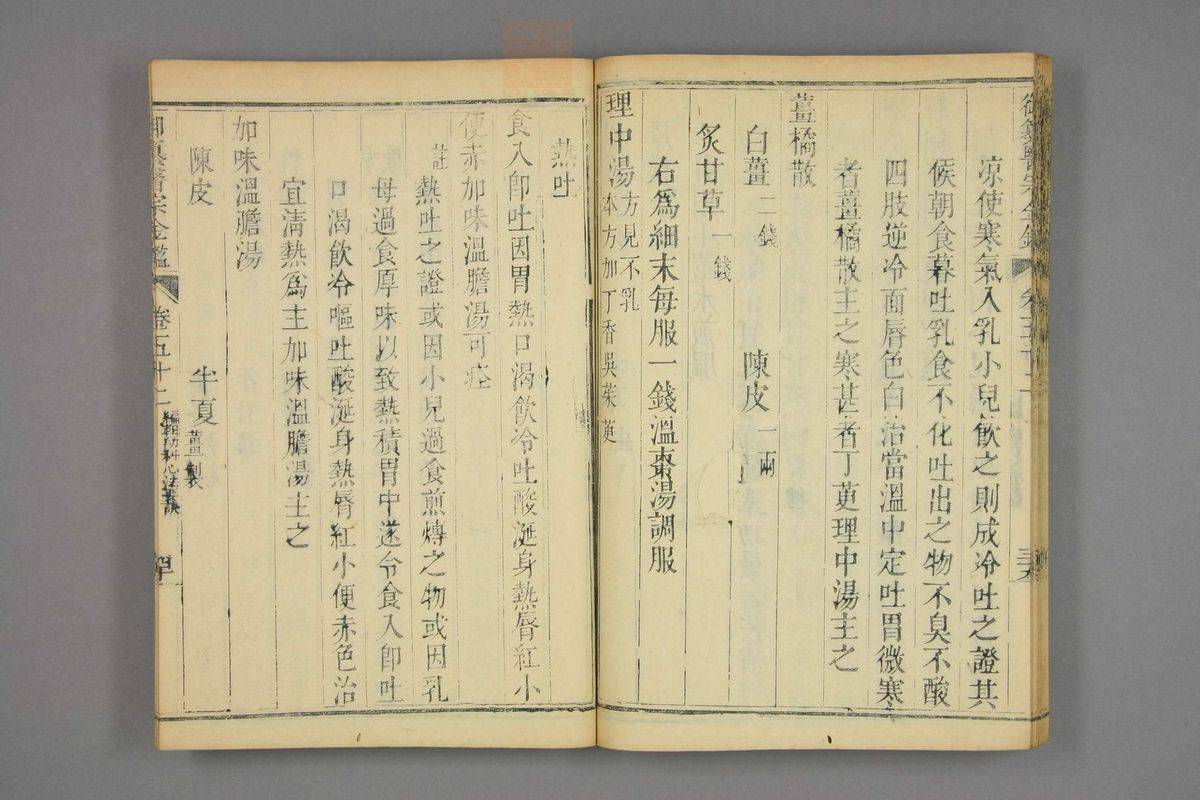 御纂醫宗金鑑
涼使寒氣入乳小兒飲之則成冷吐之證其
候朝食暮吐乳食不化吐出之物不臭不酸
四肢逆冷面唇色白治當溫中定吐胃微寒
者薑橘散主之寒甚者丁萸理中湯主之
薑橘散
白薑二錢 陳皮一兩
炙甘草一錢
右為細末每服一錢溫棗湯調服
理中湯方見不乳
本方加丁香吳茱萸
熱吐
食入即吐因胃熱口渴飲冷吐酸涎身熱唇紅小
便赤加味溫膽湯可痊
註熱吐之證或因小兒過食煎煿之物或因乳
母過食厚味以致熱積胃中遂令食入即吐
口渴飲冷嘔吐酸涎身熱唇紅小便赤色治
宜清熱為主加味溫膽湯主之
加味溫膽湯
陳皮 半夏薑製
御纂醫宗金鑑 卷五十二 編輯幼科心法要訣